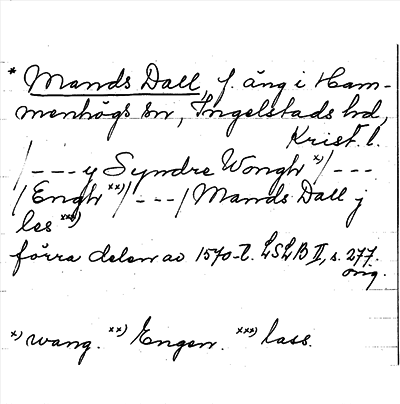 * Mands Dall, f. äng i Ham-
menhögs sn, Ingelstads hd,
Krist. l.
/---y Syndre Wongh x)/---
/Engh xx)/---/Mands Dall j
les xxx)
förra delen av 1570-t. LSLB II, s. 277.
orig.
x) wang. xx) Engen. xxx) lass.